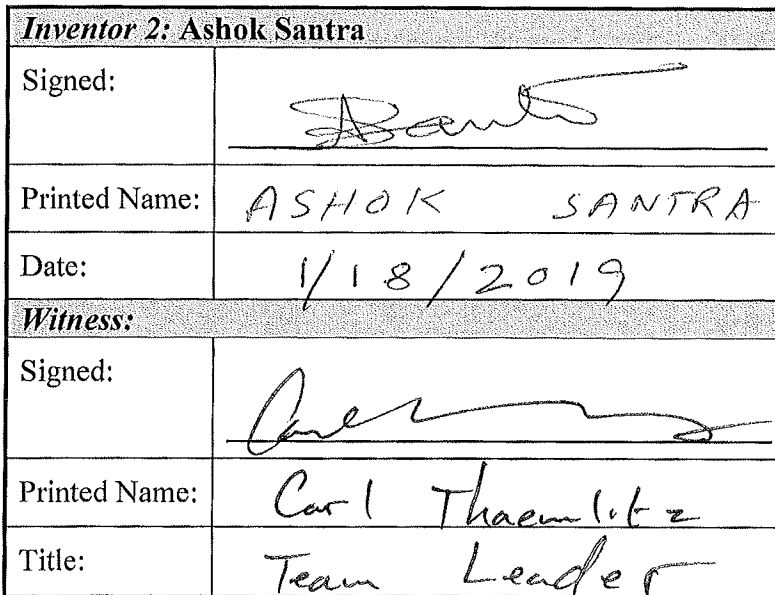 Inventor 2: Ashok Santra
Signed: ASant
Printed Name: ASHOK SANTRA
Date: 1/18/2019
Witness:
Signed:
Printed Name: Carl Thaemlitz
Title: Team Leader